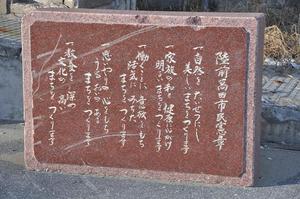 陸前高田市民憲章
一自然をたいせつにし
美しいまちをつくります
一家族の和と健康を心がけ
明るいまちをつくります
一働くことに喜びをもち
活気にみちたまちをつくります
一思いやりの心をもち
まちをつくります
一教養を深め
文化の高いまちをつくります